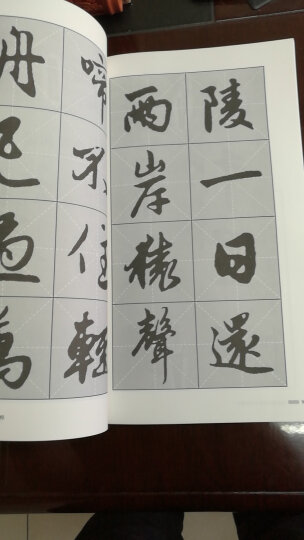 陵一日還
兩岸猿聲
啼不住輕
舟已過萬